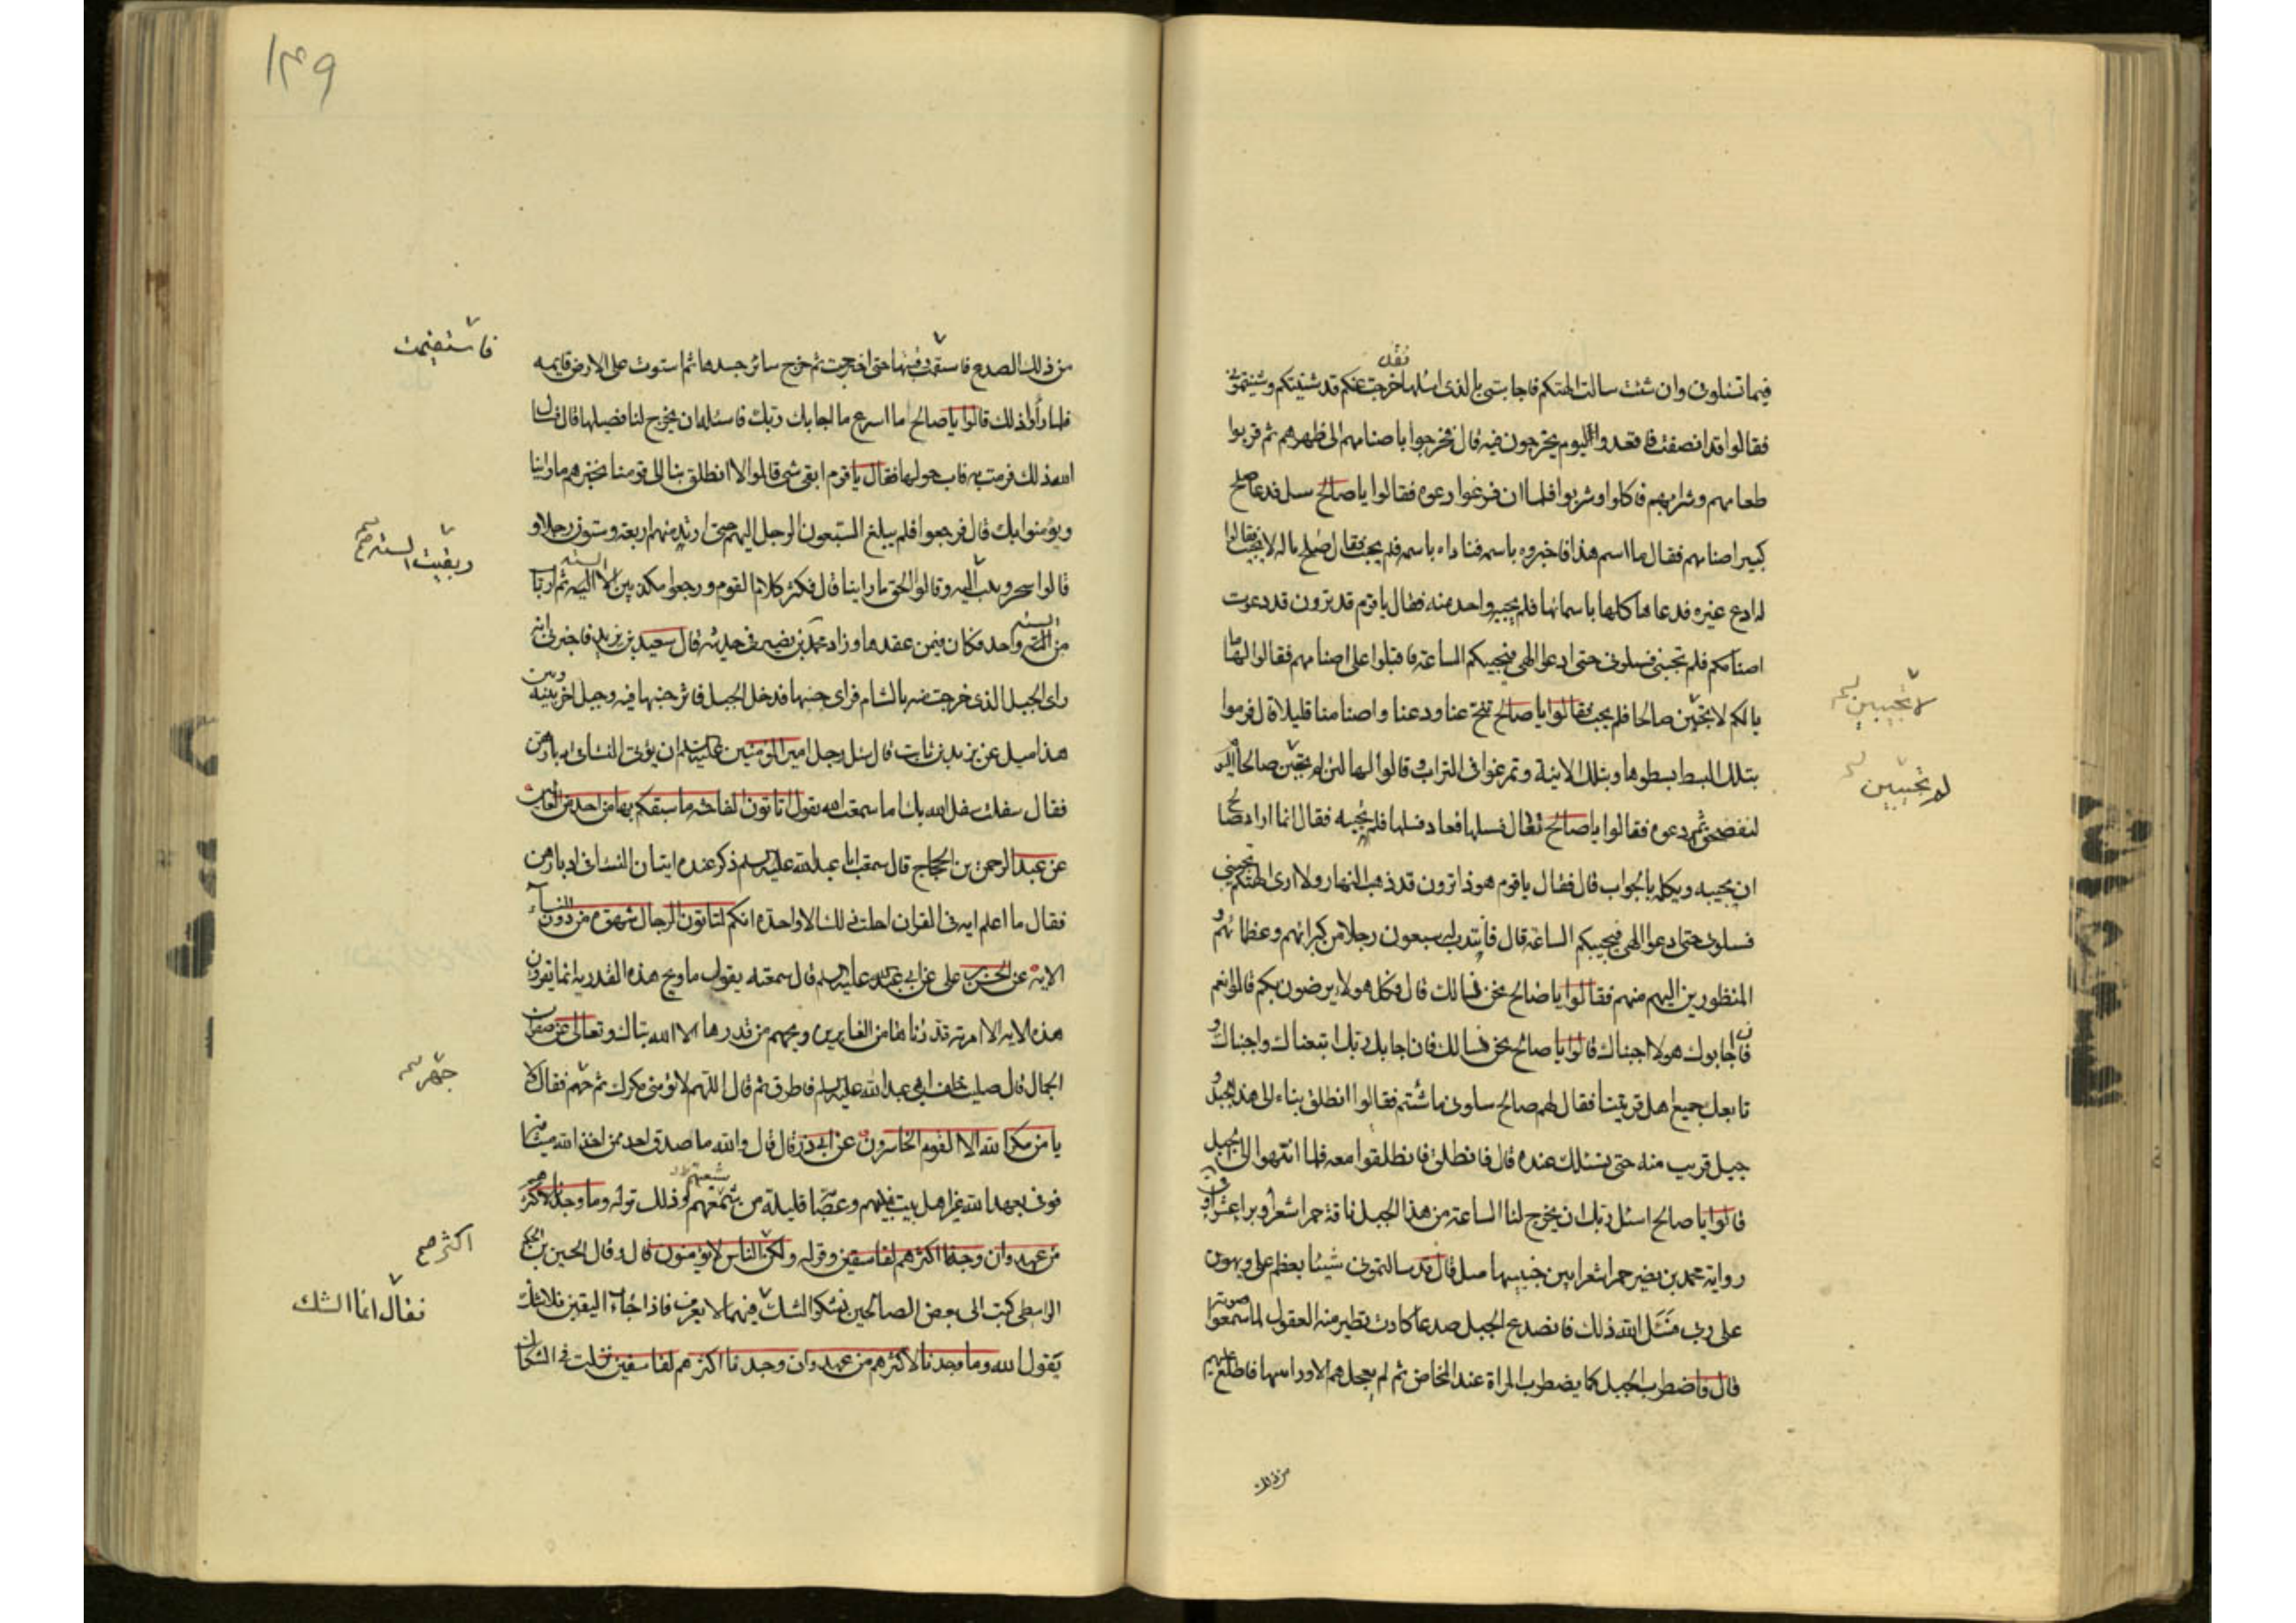 فيما تسئلونى وان شئت سالت الهتكم فاجابتنى بالذى اسئلها خرجت عنكم قد شنيتكم وشنيتمونى
فقالوا قد انصفت فاتعدوا اليوم يخرجون فيه قال فخرجوا باصنامهم الى ظهرهم ثم قربوا
طعامهم وشرابهم فاكلوا وشربوا فلما ان فرغوا دعوه فقالوا يا صالح سل فدعا صالح
كبير اصنامهم فقال ما اسم هذا فاخبروه باسمه فناداه باسمه فلم يجب فقال صالح ماله لا يجيب فقالوا
له ادع غيره فدعاها كلها باسمائها فلم يجبه واحد منهم فقال يا قوم قد ترون قد دعوت
اصنامكم فلم تجبنى فسلونى حتى ادعوا الهى فيجيبكم الساعة فاقبلوا على اصنامهم فقالوا لها ما
بالكم لا تجيبين صالحا فلم يجب فقالوا يا صالح تنح عنا ودعنا واصنامنا قليلا قال فرموا
بتلك البسط بسطوها وبتلك الانية وتمرغوا فى التراب وقالوا لها لئن لم تجيبن صالحا اليوم
لنفضحن ثم دعوه فقالوا يا صالح تعال فسلها فعاد فسلها فلم تجبه فقال انما اراد صالح
ان يجيبه ويكلمه بالجواب قال فقال يا قوم هوذا ترون قد ذهب النهار ولا ارى الهتكم تجيبنى
فسلونى حتى ادعوا الهى فيجيبكم الساعة قال فانتدب له سبعون رجلا من كبرائهم وعظمائهم و
المنظورين اليهم منهم فقالوا يا صالح نحن نسالك قال فكل هولاء يرضون بكم قالوا نعم
فان اجابوك هولاء اجبناك قالوا يا صالح نحن نسالك فان اجابك ربك اتبعناك واجبناك و
تابعك جميع اهل قريتنا فقال لهم صالح سلونى ماشئتم فقالوا انطلق بناء الى هذا الجبل و
جبل قريب منه حتى نسئلك عنده قال فانطلق فانطلقوا معه فلما انتهوا الى الجبل
قالوا يا صالح اسئل ربك ان يخرج لنا الساعة من هذا الجبل ناقة حمراء شعراء وبراء عشراء وفى
رواية محمد بن نصير حمراء شعراء بين جنبيها ميل قال قد سالتمونى شيئا يعظم على ويهون
على ربى فسئل الله ذلك فانصدع الجبل صدعا كادت تطير منه العقول لما سمعوا صوته
قال فاضطرب الجبل كما يضطرب المراة عند المخاض ثم لم يعجلهم الا وراسها قد اطلع عليهم
نقل
لا تجيبين
لم تجيبين
من ذلك
١٣٩
من ذلك الصدع فاستقمت فيها حتى اخرجت ثم خرج سائر جسدها ثم استوت على الارض قايمه
فلما رأوا ذلك قالوا يا صالح ما اسرع ما اجابك ربك فاسئله ان يخرج لنا فصيلها قال فسال
الله ذلك فرمت به فاب حولها فقال يا قوم ابقى شئ قالوا لا انطلق بنا الى قومنا نخبرهم ما راينا
ويؤمنوا بك قال فرجعوا فلم يبلغ السبعون الرجل اليهم حتى ارتد منهم اربعة وستون رجلا و
قالوا سحر وقالوا الحق ما راينا قال فكثر كلام القوم ورجعوا مكذبين الا الستة ثم ارتاب
من الستة واحد فكان فيمن عقرها وزاد محمد بن نصير فى حديثه قال سعيد بن يزيد فاخبرنى انه
راى الجبل الذى خرجت منه بالشام فراى جنبها قد حك الجبل فاثر جنبها فيه وجبل اخر بينه وبين
هذا ميل عن يزيد بن ثابت قال سئل رجل امير المؤمنين عليه السلام ان يؤتى النساء فى ادبارهن
فقال سفلت سفل الله بك اما سمعت الله يقول اتاتون الفاحشة ما سبقكم بها من احد من العالمين
عن عبد الرحمن بن الحجاج قال سمعت ابا عبد الله عليه السلم ذكر عنده اتيان النساء فى ادبارهن
فقال ما اعلم اية فى القران احلت ذلك الا واحدة انكم لتاتون الرجال شهوة من دون النساء
الاية عن الحسن بن على عن ابى عبد الله عليه السلم قال سمعته يقول ما ويح هذه القدرية انما يقرون
هذه الاية الا امرته قدرناها من الغابرين ويحهم من قدرها الا الله تبارك وتعالى عن صفوان
الجمال قال صليت خلف ابى عبد الله عليه السلم فاطرق ثم قال اللهم لا تؤمنى مكرك ثم جهم فقال لا
يامن مكر الله الا القوم الخاسرون عن ابى ذر قال قال والله ما صدق احد ممن اخذ الله ميثاقه
فوفى بعهد الله غير اهل بيت نبيهم وعصابة قليلة من شيعتهم وذلك قوله وما وجدنا لاكثرهم
من عهد وان وجدنا اكثرهم لفاسقين وقوله ولكن الناس لا يؤمنون قال وقال الحسين بن الحكم
الواسطى كتبت الى بعض الصالحين نشكوا الشك فيما لا يعرف فاذا جاء اليقين فلا شك
يقول الله وما وجدنا لاكثرهم من عهد وان وجدنا اكثرهم لفاسقين نزلت فى الشكاك
فاستقيمت
وبقيت الستة صح
جهر
شيعتهم
اكثر صح
فقال انما الشك